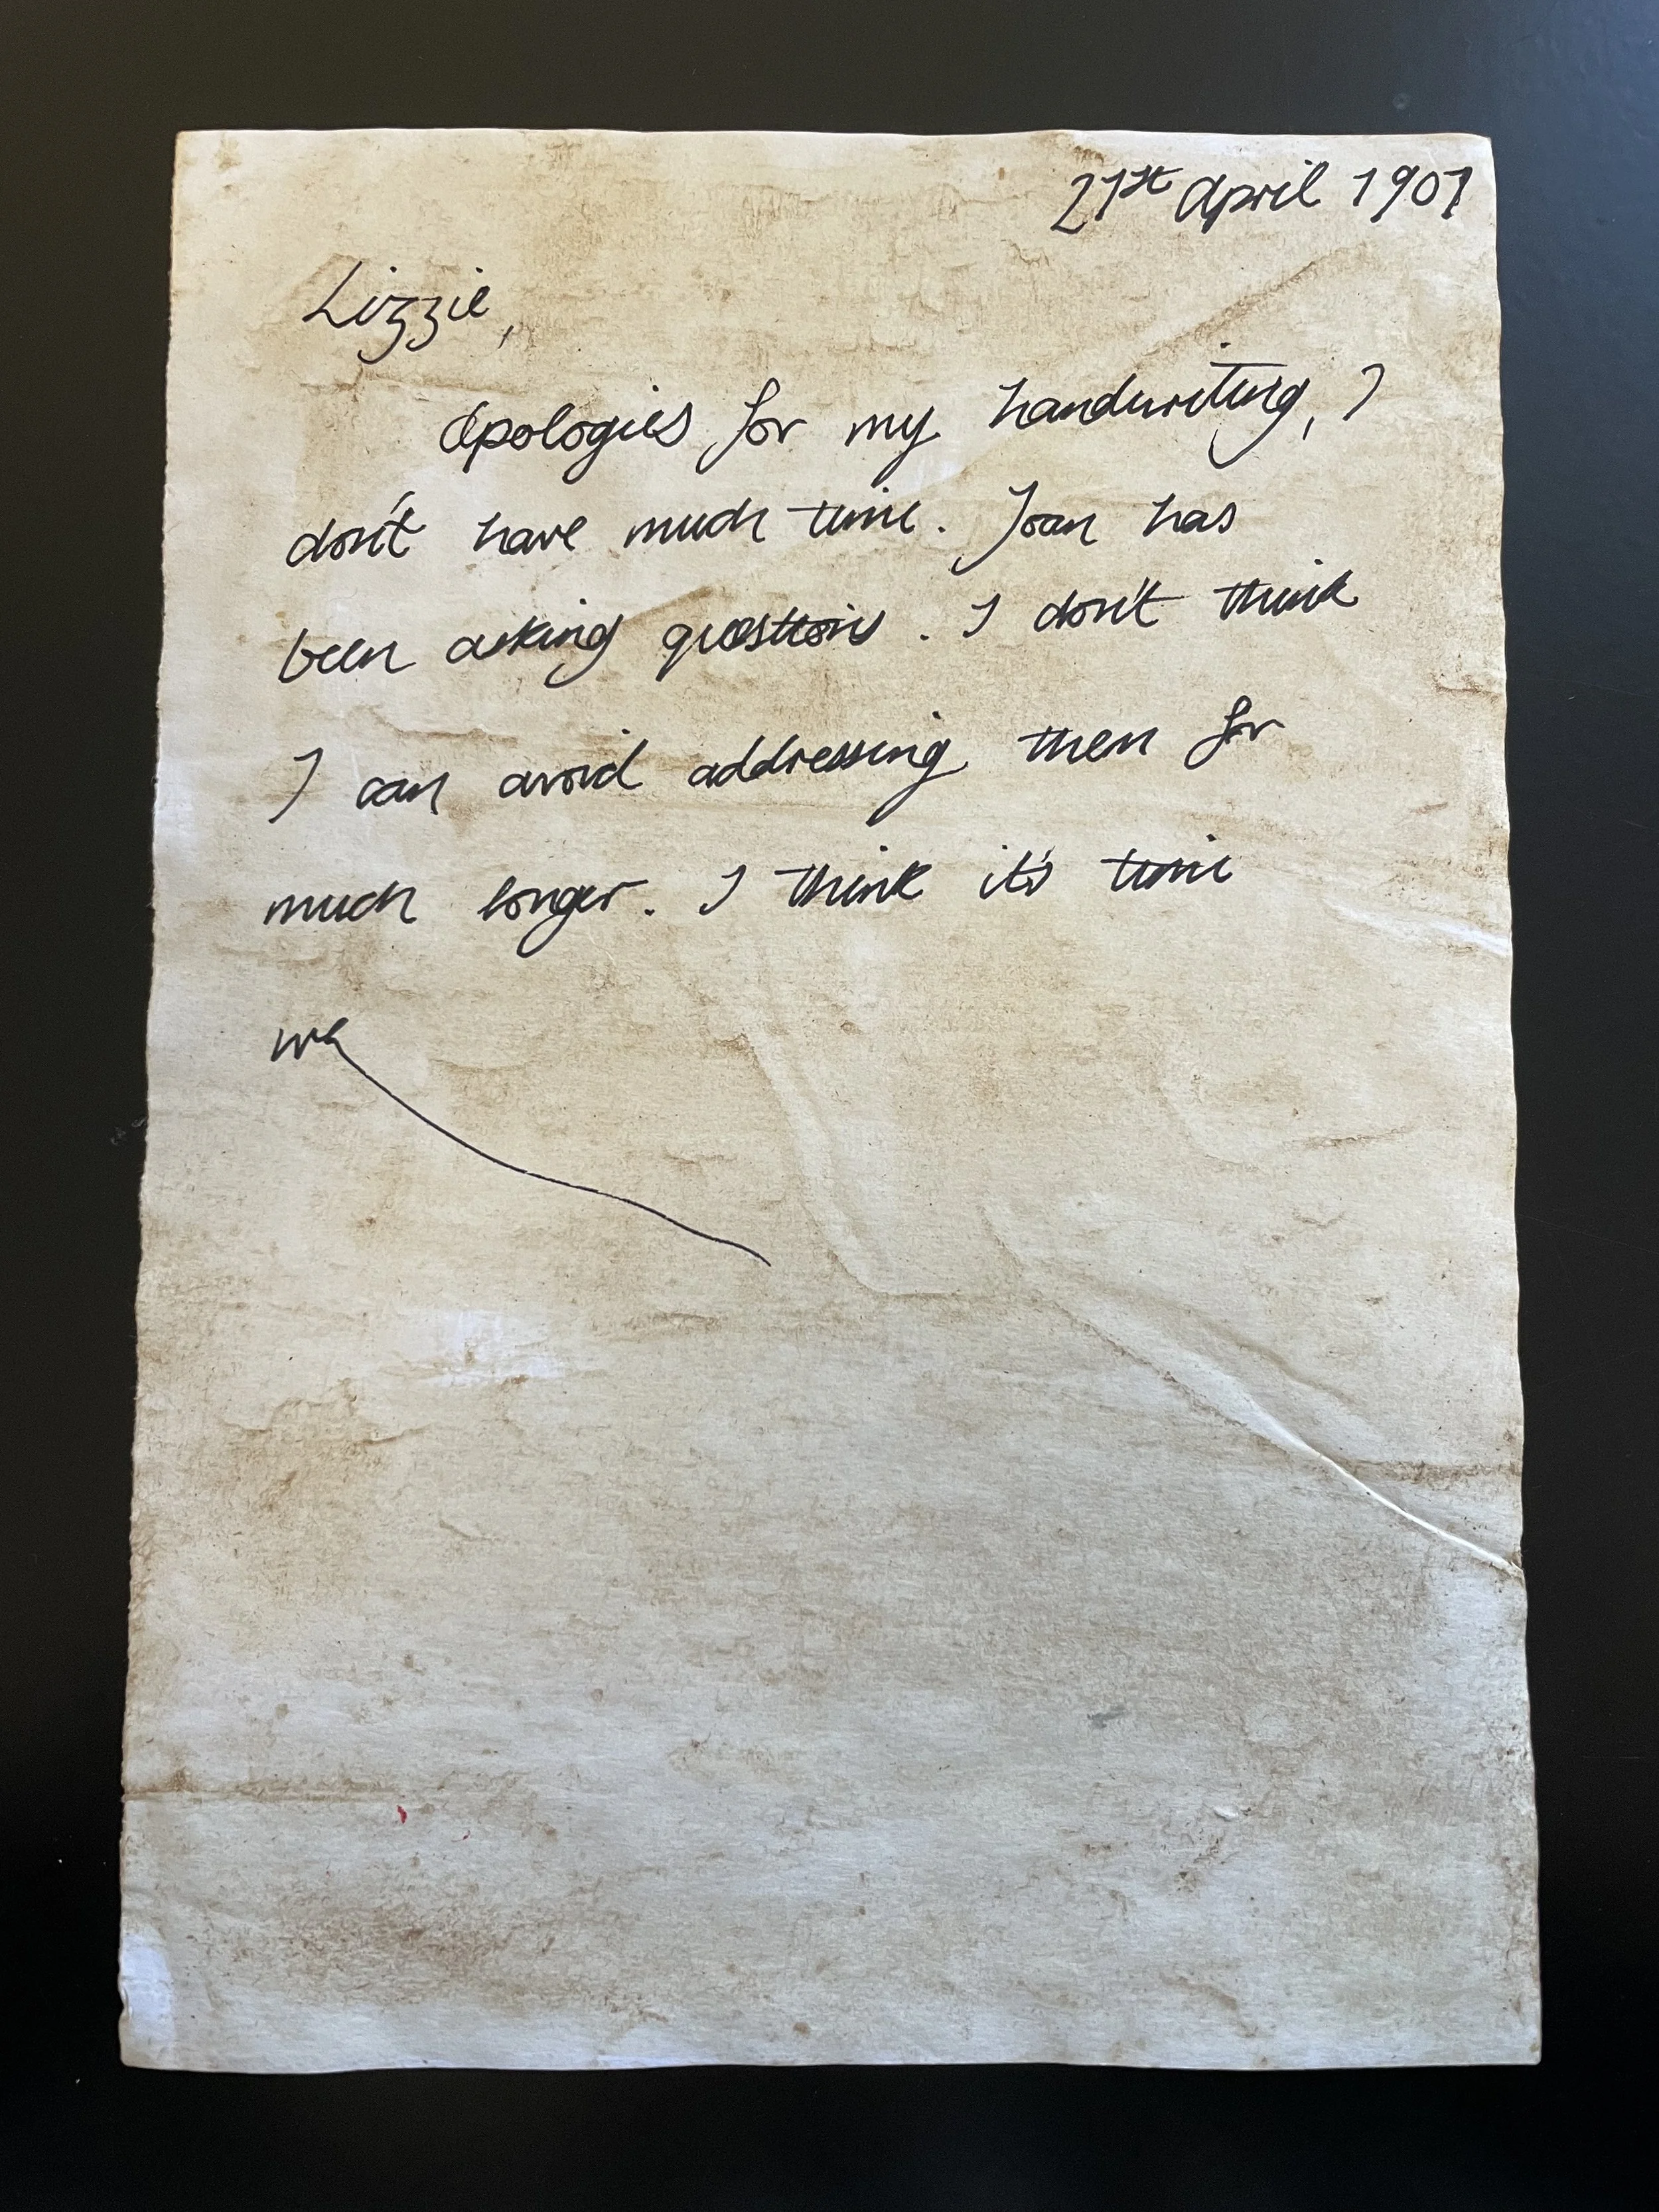 21st April 1901
Lizzie,
Apologies for my handwriting, I
don't have much time. Joan has
been asking questions. I don't think
I can avoid addressing them for
much longer. I think it's time
we